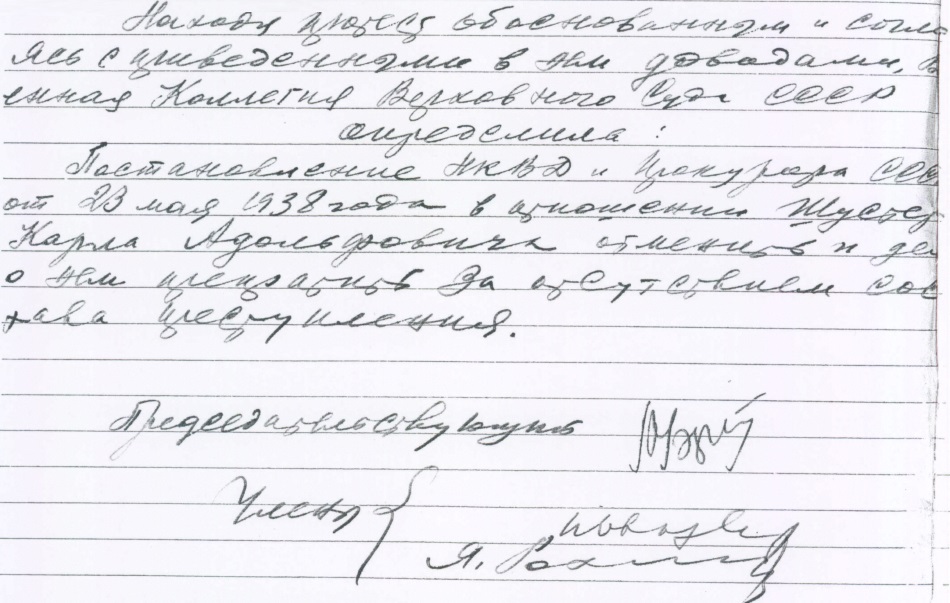 Находя протест обоснованным и согла
ясь с приведенными в нем доводами, В
енная Коллегия Верховного Суда СССР
определила:
Постановление НКВД и Прокурора СССР
от 23 мая 1938 года в отношении Шустер
Карла Адольфовича отменить и дел
о нем прекратить за отсутствием сос
тава преступления.
Председательствующий
Члены
Я.